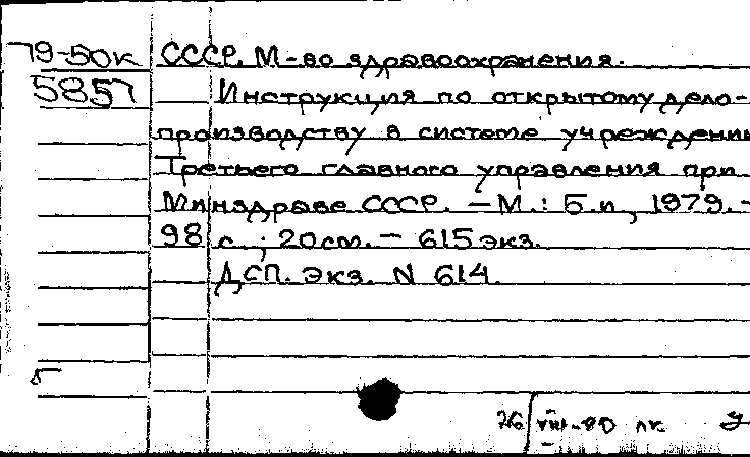 79-50к СССР. М-во здравоохранения.
5857 Инструкция по открытому дело-
производству в системе учреждений
Третьего главного управления при
Минздраве СССР. — М.: Б.и, 1979. -
98 с.; 20 см. — 615 экз.
ДСП. Экз. N 614.
26/VIII-80 лк